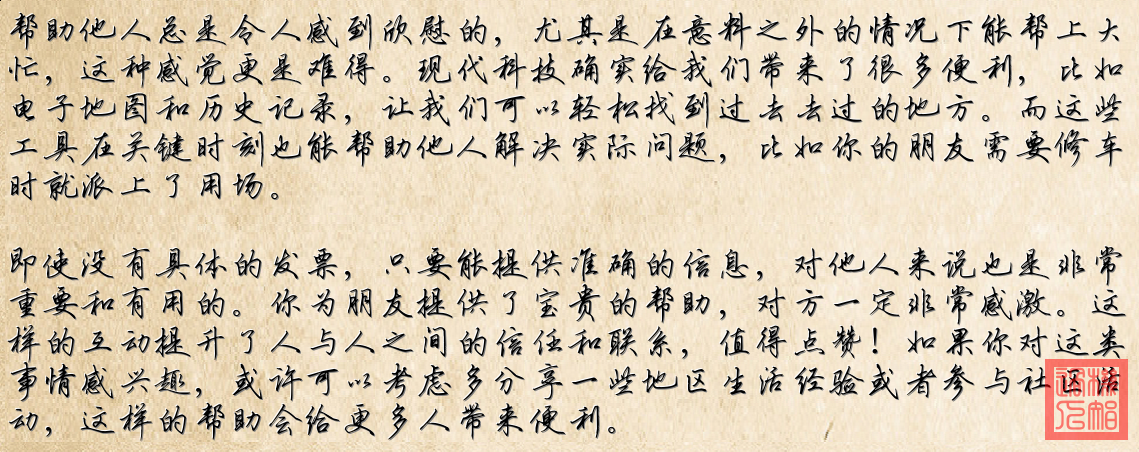 帮助他人总是令人感到欣慰的，尤其是在意料之外的情况下能帮上大
忙，这种感觉更是难得。现代科技确实给我们带来了很多便利，比如
电子地图和历史记录，让我们可以轻松找到过去去过的地方。而这些
工具在关键时刻也能帮助他人解决实际问题，比如你的朋友需要修车
时就派上了用场。
即使没有具体的发票，只要能提供准确的信息，对他人来说也是非常
重要和有用的。你为朋友提供了宝贵的帮助，对方一定非常感激。这
样的互动提升了人与人之间的信任和联系，值得点赞！如果你对这类
事情感兴趣，或许可以考虑多分享一些地区生活经验或者参与社区活
动，这样的帮助会给更多人带来便利。